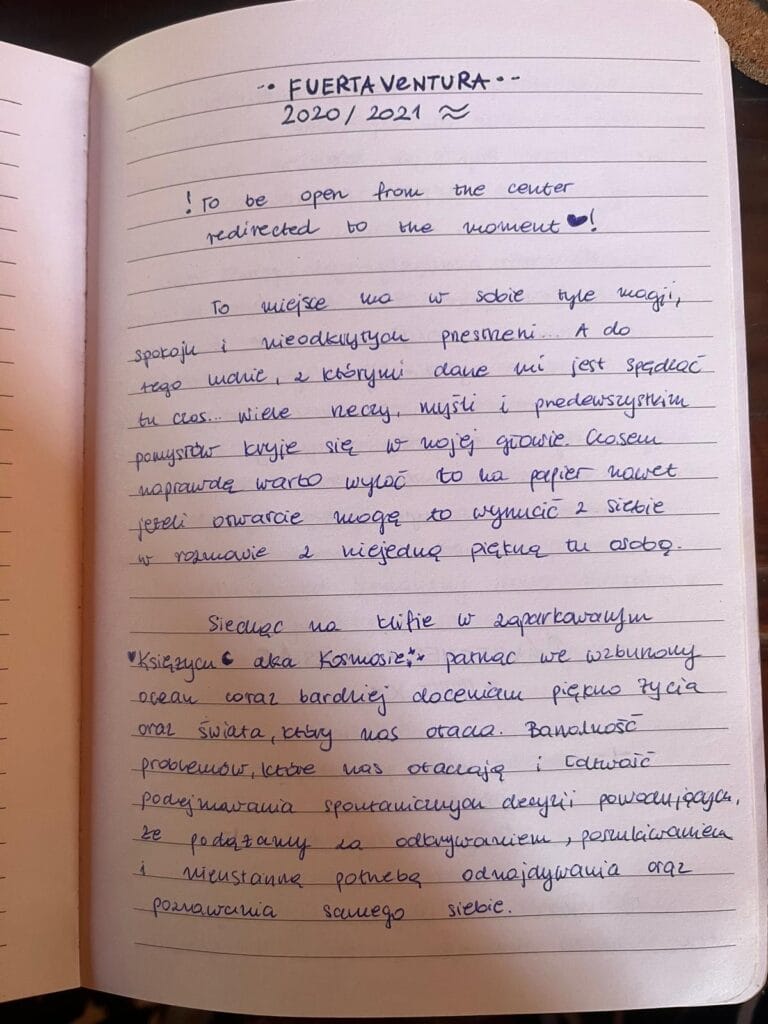 -• FUERTAVENTURA •-
2020 / 2021 ≈
! To be open from the center
redirected to the moment ♥!
To miejsce ma w sobie tyle magji,
spokoju i nieodkrytych przestrzeni... A do
tego ludzie, z którymi dane mi jest spędzać
tu czas... Wiele rzeczy, myśli i przedewszystkim
pomysłów kryje się w mojej głowie. Czasem
naprawdę warto wylać to na papier nawet
jeżeli otwarcie mogę to wyrzucić z siebie
w rozmowie z niejedną piękną tu osobą.
Siedząc na klifie w zaparkowanym
♥Księżycu☾ aka Kosmosie patrząc we wzburzony
ocean coraz bardziej doceniam piękno życia
oraz świata, który nas otacza. Banalność
problemów, które nas otaczają i łatwość
podejmowania spontanicznych decyzji powodujących,
że podążamy za odkrywaniem, poszukiwaniem
i nieustanną potrzebą odnajdywania oraz
poznawania samego siebie.